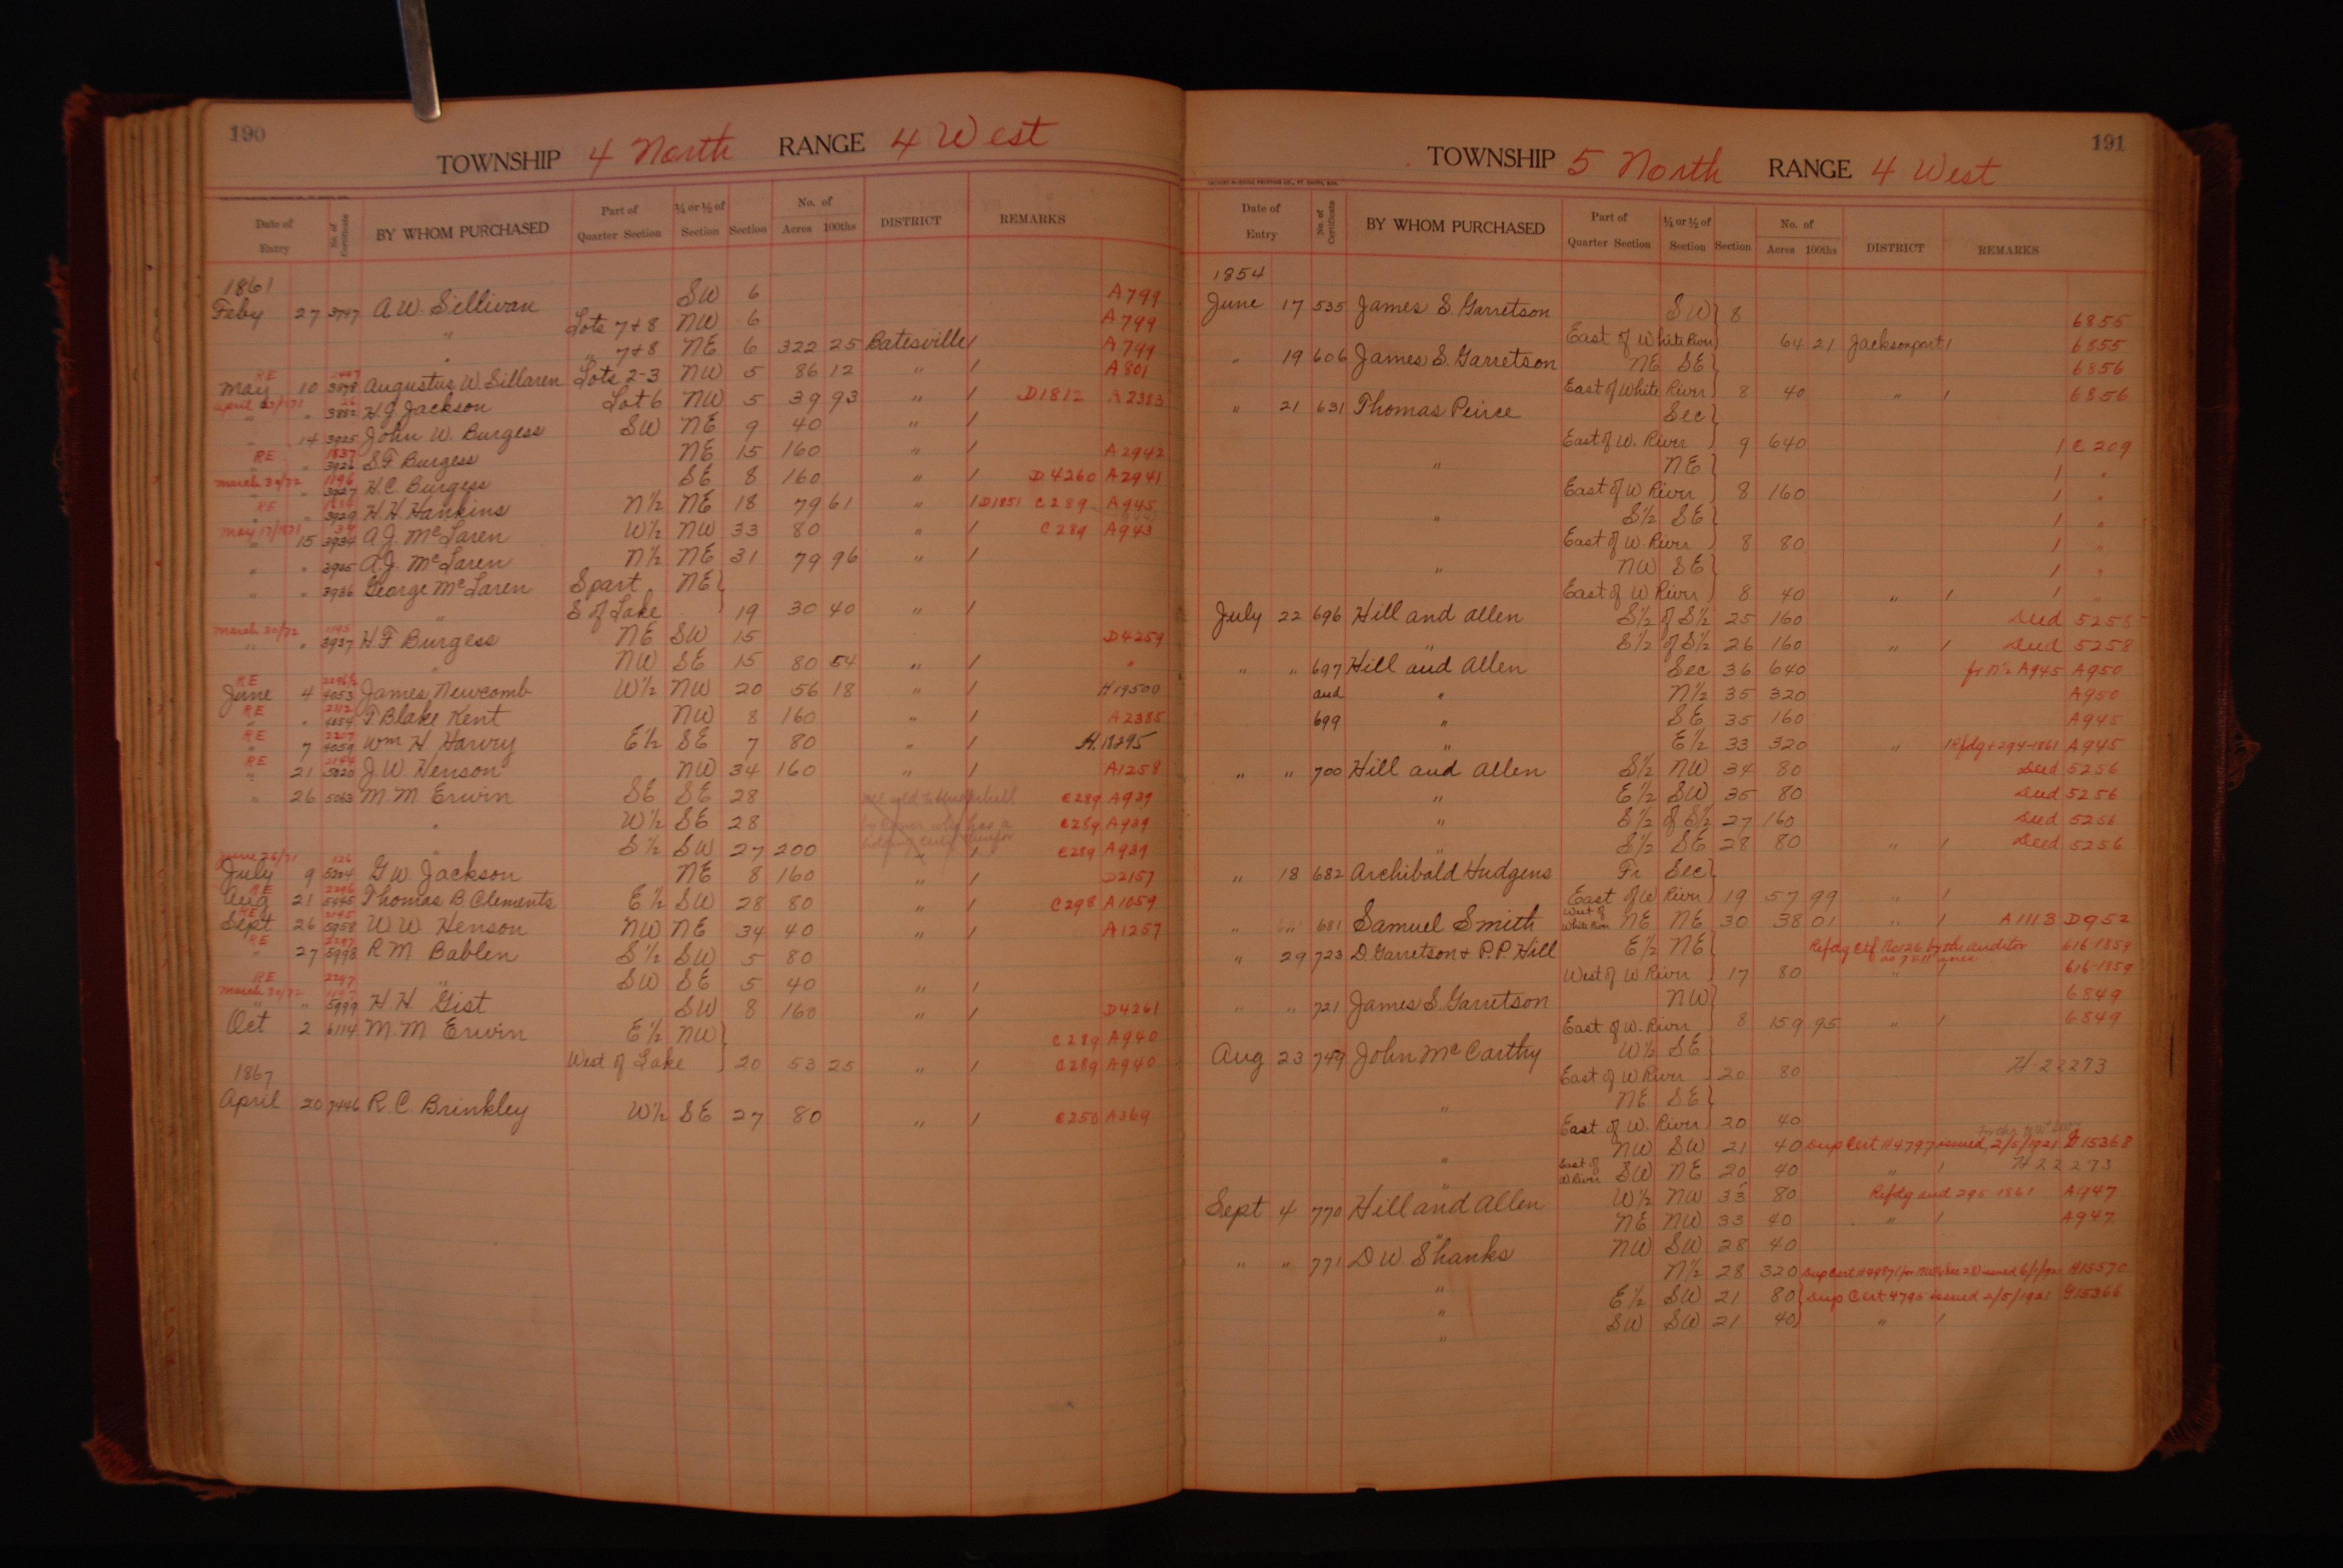 190
TOWNSHIP 4 North RANGE 4 West
Date of Entry No. of Certificate BY WHOM PURCHASED Part of Quarter Section ¼ or ½ of Section Section No. of Acres 100ths DISTRICT REMARKS
1861
Feby 27 3747 A.W. Sillivan SW 6 A799
" Lots 7+8 NW 6 A799
" " 7+8 NE 6 322 25 Batesville / A799
RE
May 10 3878 Augustus W. Sillaren Lots 2-3 NW 5 86 12 " / A801
April 27/1871
" " 3882 H.G. Jackson Lot 6 NW 5 39 93 " / D1812 A2383
" 14 3925 John W. Burgess SW NE 9 40 " /
RE 1837
" " 3926 S F Burgess NE 15 160 " / A2942
March 30/72 1196
" " 3927 H.C. Burgess SE 8 160 " / D4260 A2941
RE
" " 3929 H.H. Hankins N½ NE 18 79 61 " / D1851 C289 A945
May 17/1871
" 15 3934 A.J. McLaren W½ NW 33 80 " / C289 A943
" " 3935 A.J. McLaren N½ NE 31 79 96 " /
" " 3936 George McLaren S part NE }
" S of Lake } 19 30 40 " /
March 30/72 1195
" " 3937 H F Burgess NE SW 15 D4259
" NW SE 15 80 54 " / "
RE
June 4 4053 James Newcomb W½ NW 20 56 18 " / H19500
RE 2112
" " 4054 T Blake Kent NW 8 160 " / A2385
RE 2207
" 7 4059 Wm H Harvey E½ SE 7 80 " / H.18295
RE
" 21 5020 J.W. Henson NW 34 160 " / A1258
" 26 5063 M.M Erwin SE SE 28 C289 A939
" W½ SE 28 C289 A939
" S½ SW 27 200 " / C289 A939
June 26/71 126
July 9 5204 G.W. Jackson NE 8 160 " / D2157
RE 2296
Aug 21 5495 Thomas B Clements E½ SW 28 80 " / C298 A1059
RE 2145
Sept 26 5958 W W Henson NW NE 34 40 " / A1257
RE 2297
" 27 5998 R M Bablen S½ SW 5 80
RE 2297
" SW SE 5 40 " /
March 30/72 1197
" " 5999 H H Gist SW 8 160 " / D4261
Oct 2 6114 M.M Erwin E½ NW } C289 A940
West of Lake } 20 53 25 " / C289 A940
1867
April 20 7446 R.C. Brinkley W½ SE 27 80 " / C250 A369
191
TOWNSHIP 5 North RANGE 4 West
Date of Entry No. of Certificate BY WHOM PURCHASED Part of Quarter Section ¼ or ½ of Section Section No. of Acres 100ths DISTRICT REMARKS
1854
June 17 535 James S. Garretson SW } 8 6855
East of White River } 64 21 Jacksonport / 6855
" 19 606 James S. Garretson NE SE } 6856
East of White River } 8 40 " / 6856
" 21 631 Thomas Peirce Sec }
East of W. River } 9 640 / C 209
" NE } / "
East of W River } 8 160 / "
" S½ SE } / "
East of W. River } 8 80 / "
" NW SE } / "
East of W River } 8 40 " / / "
July 22 696 Hill and Allen S½ of S½ 25 160 Deed 5258
" S½ of S½ 26 160 " / Deed 5258
" " 697 Hill and Allen Sec 36 640 fr N½ A945 A950
and " N½ 35 320 A950
699 " SE 35 160 A945
" E½ 33 320 " / Rfdg + 294-1861 A945
" " 700 Hill and Allen S½ NW 34 80 Deed 5256
" E½ SW 35 80 Deed 5256
" S½ of S½ 27 160 Deed 5256
" S½ SE 28 80 " / Deed 5256
" 18 682 Archibald Hudgens Fr Sec }
East of W River } 19 57 99 " /
" " 681 Samuel Smith West of White River NE NE 30 38 01 " / A1113 D952
" 29 723 D. Garretson + P.P. Hill E½ NE { Refdg Ctf No 126 by the Auditor 616-1859
West of W River } 17 80 " / 616-1859
" " 721 James S. Garretson NW } 6849
East of W. River } 8 159 95 " / 6849
Aug 23 749 John McCarthy W½ SE }
East of W River } 20 80 H-22273
" NE SE }
East of W. River } 20 40
" NW SW 21 40 Dup Cert #4797 issued 2/5/1921 G15368
" East of W River SW NE 20 40 " / H22273
Sept 4 770 Hill and Allen W½ NW 33 80 Refdg and 295 1861 A947
" NE NW 33 40 " / A947
" " 771 D W Shanks NW SW 28 40
" N½ 28 320 H15570
" E½ SW 21 80 } Dup Cert 4795 issued 2/5/1921 G15366
" SW SW 21 40 } " /